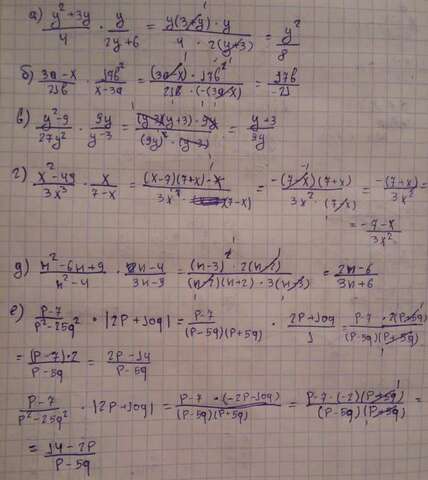 а) (y²+3y)/4 · y/(2y+6) = (y(3+y)·y)/(4·2(y+3)) = y²/8
б) (3a-x)/21b · 17b²/(x-3a) = ((3a-x)·17b²)/(21b·(-(3a-x))) = 17b/-21
в) (y²-9)/27y² · 9y/(y-3) = ((y-3)(y+3)·9y)/((9y)²·(y-3)) = (y+3)/9y
г) (x²-49)/3x³ · x/(7-x) = ((x-7)(7+x)·x)/(3x³·(7-x)) = (-(7-x)(7+x))/(3x²·(7-x)) = (-(7+x))/3x² =
= (-7-x)/3x²
д) (n²-6n+9)/(n²-4) · (2n-4)/(3n-9) = ((n-3)²·2(n-2))/((n-2)(n+2)·3(n-3)) = (2n-6)/(3n+6)
е) (p-7)/(p²-25q²) · |2p+10q| = (p-7)/((p-5q)(p+5q)) · (2p+10q)/1 = (p-7·2(p+5q))/((p-5q)(p+5q))
= ((p-7)·2)/(p-5q) = (2p-14)/(p-5q)
(p-7)/(p²-25q²) · |2p+10q| = (p-7·(-2p-10q))/((p-5q)(p+5q)) = (p-7·(-2)(p+5q))/((p-5q)(p+5q)) =
= (14-2p)/(p-5q)